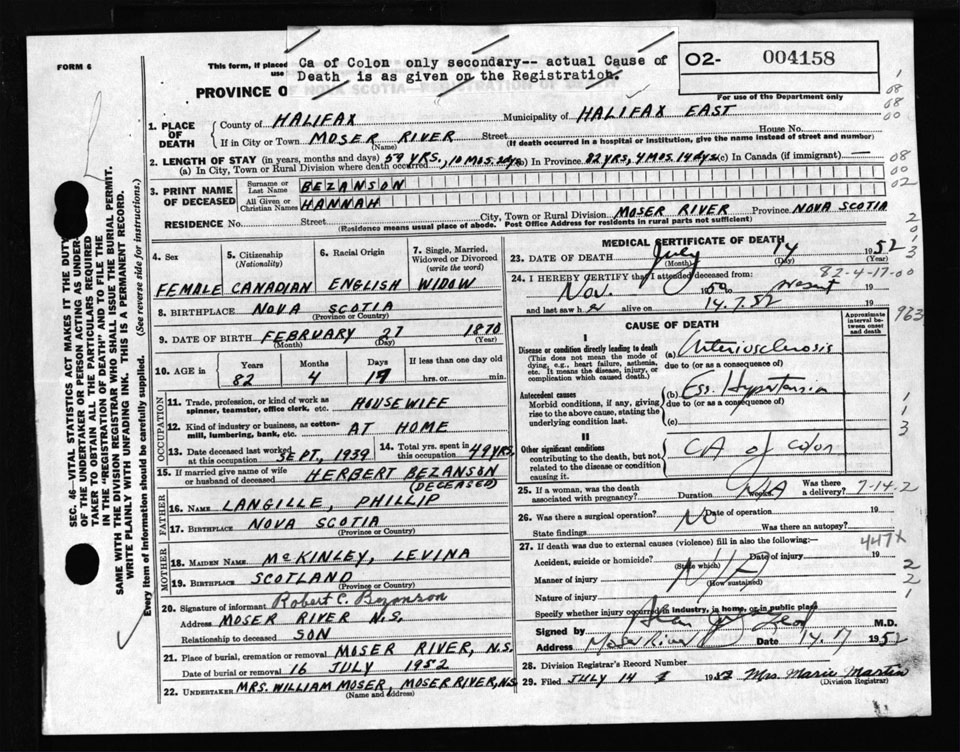 FORM 6
This form, if placed
use
Ca of Colon only secondary-- actual Cause of
Death is as given on the Registration.
O2- 004158
For use of the Department only
PROVINCE O
OF NOVA SCOTIA—REGISTRATION OF DEATH
1. PLACE OF DEATH
County of HALIFAX Municipality of HALIFAX EAST
If in City or Town MOSER RIVER Street House No.
(Name) (If death occurred in a hospital or institution, give the name instead of street and number)
2. LENGTH OF STAY (in years, months and days) 59 YRS., 10 MOS.
(a) In City, Town or Rural Division where death occurred (b) In Province 82 YRS, 4 MOS. 14 dys. (c) In Canada (if immigrant) —
3. PRINT NAME OF DECEASED
Surname or Last Name BEZANSON
All Given or Christian Names HANNAH
RESIDENCE No. Street City, Town or Rural Division MOSER RIVER Province NOVA SCOTIA
(Residence means usual place of abode. Post Office Address for residents in rural parts not sufficient)
4. Sex
FEMALE
5. Citizenship (Nationality)
CANADIAN
6. Racial Origin
ENGLISH
7. Single, Married, Widowed or Divorced (write the word)
WIDOW
8. BIRTHPLACE NOVA SCOTIA
(Province or Country)
9. DATE OF BIRTH FEBRUARY 27 1870
(Month) (Day) (Year)
10. AGE in Years Months Days If less than one day old
82 4 17 hrs. or min.
OCCUPATION
11. Trade, profession, or kind of work as spinner, teamster, office clerk, etc. HOUSEWIFE
12. Kind of industry or business, as cotton-mill, lumbering, bank, etc. AT HOME
13. Date deceased last worked at this occupation SEPT, 1939
14. Total yrs. spent in this occupation 49 YRS.
15. If married give name of wife or husband of deceased HERBERT BEZANSON
(DECEASED)
FATHER
16. NAME LANGILLE, PHILLIP
17. BIRTHPLACE NOVA SCOTIA
(Province or Country)
MOTHER
18. MAIDEN NAME McKINLEY, LEVINA
19. BIRTHPLACE SCOTLAND
(Province or Country)
20. Signature of informant Robert C. Bezanson
Address MOSER RIVER N.S.
Relationship to deceased SON
21. Place of burial, cremation or removal MOSER RIVER, N.S.
Date of burial or removal 16 JULY 1952
22. UNDERTAKER MRS. WILLIAM MOSER, MOSER RIVER, N.S.
(Name and Address)
MEDICAL CERTIFICATE OF DEATH
23. DATE OF DEATH July 14 1952
(Month) (Day) (Year)
82-4-17-00
24. I HEREBY CERTIFY that I attended deceased from:
Nov. 1950 to present 19
and last saw h er alive on 14.7.52 19
963
CAUSE OF DEATH
Approximate interval between onset and death
I
Disease or condition directly leading to death
(This does not mean the mode of dying, e.g., heart failure, asthenia, etc. It means the disease, injury, or complication which caused death.)
(a) Arteriosclerosis
due to (or as a consequence of)
Antecedent causes
Morbid conditions, if any, giving rise to the above cause, stating the underlying condition last.
(b) Ess. Hypertension
due to (or as a consequence of)
(c)
II
Other significant conditions
contributing to the death, but not related to the disease or condition causing it.
CA of colon
25. If a woman, was the death associated with pregnancy? Duration N/A weeks. Was there a delivery? 7-14-2
26. Was there a surgical operation? No Date of operation 19
State findings Was there an autopsy?
447X
27. If death was due to external causes (violence) fill in also the following:
Accident, suicide or homicide? Date of injury 19
(State which)
Manner of injury N/A
(How sustained)
Nature of injury
Specify whether injury occurred in industry, in home, or in public place
Signed by M.D.
Address Moser River Date 1952
28. Division Registrar's Record Number
29. Filed JULY 14 1952 Mrs. Marie Martin
(Division Registrar)
SEC. 46—VITAL STATISTICS ACT MAKES IT THE DUTY
OF THE UNDERTAKER OR PERSON ACTING AS UNDER-
TAKER TO OBTAIN ALL THE PARTICULARS REQUIRED
IN THE "REGISTRATION OF DEATH" AND TO FILE THE
SAME WITH THE DIVISION REGISTRAR WHO SHALL ISSUE THE BURIAL PERMIT.
WRITE PLAINLY WITH UNFADING INK. THIS IS A PERMANENT RECORD.
Every item of information should be carefully supplied. (See reverse side for instructions.)